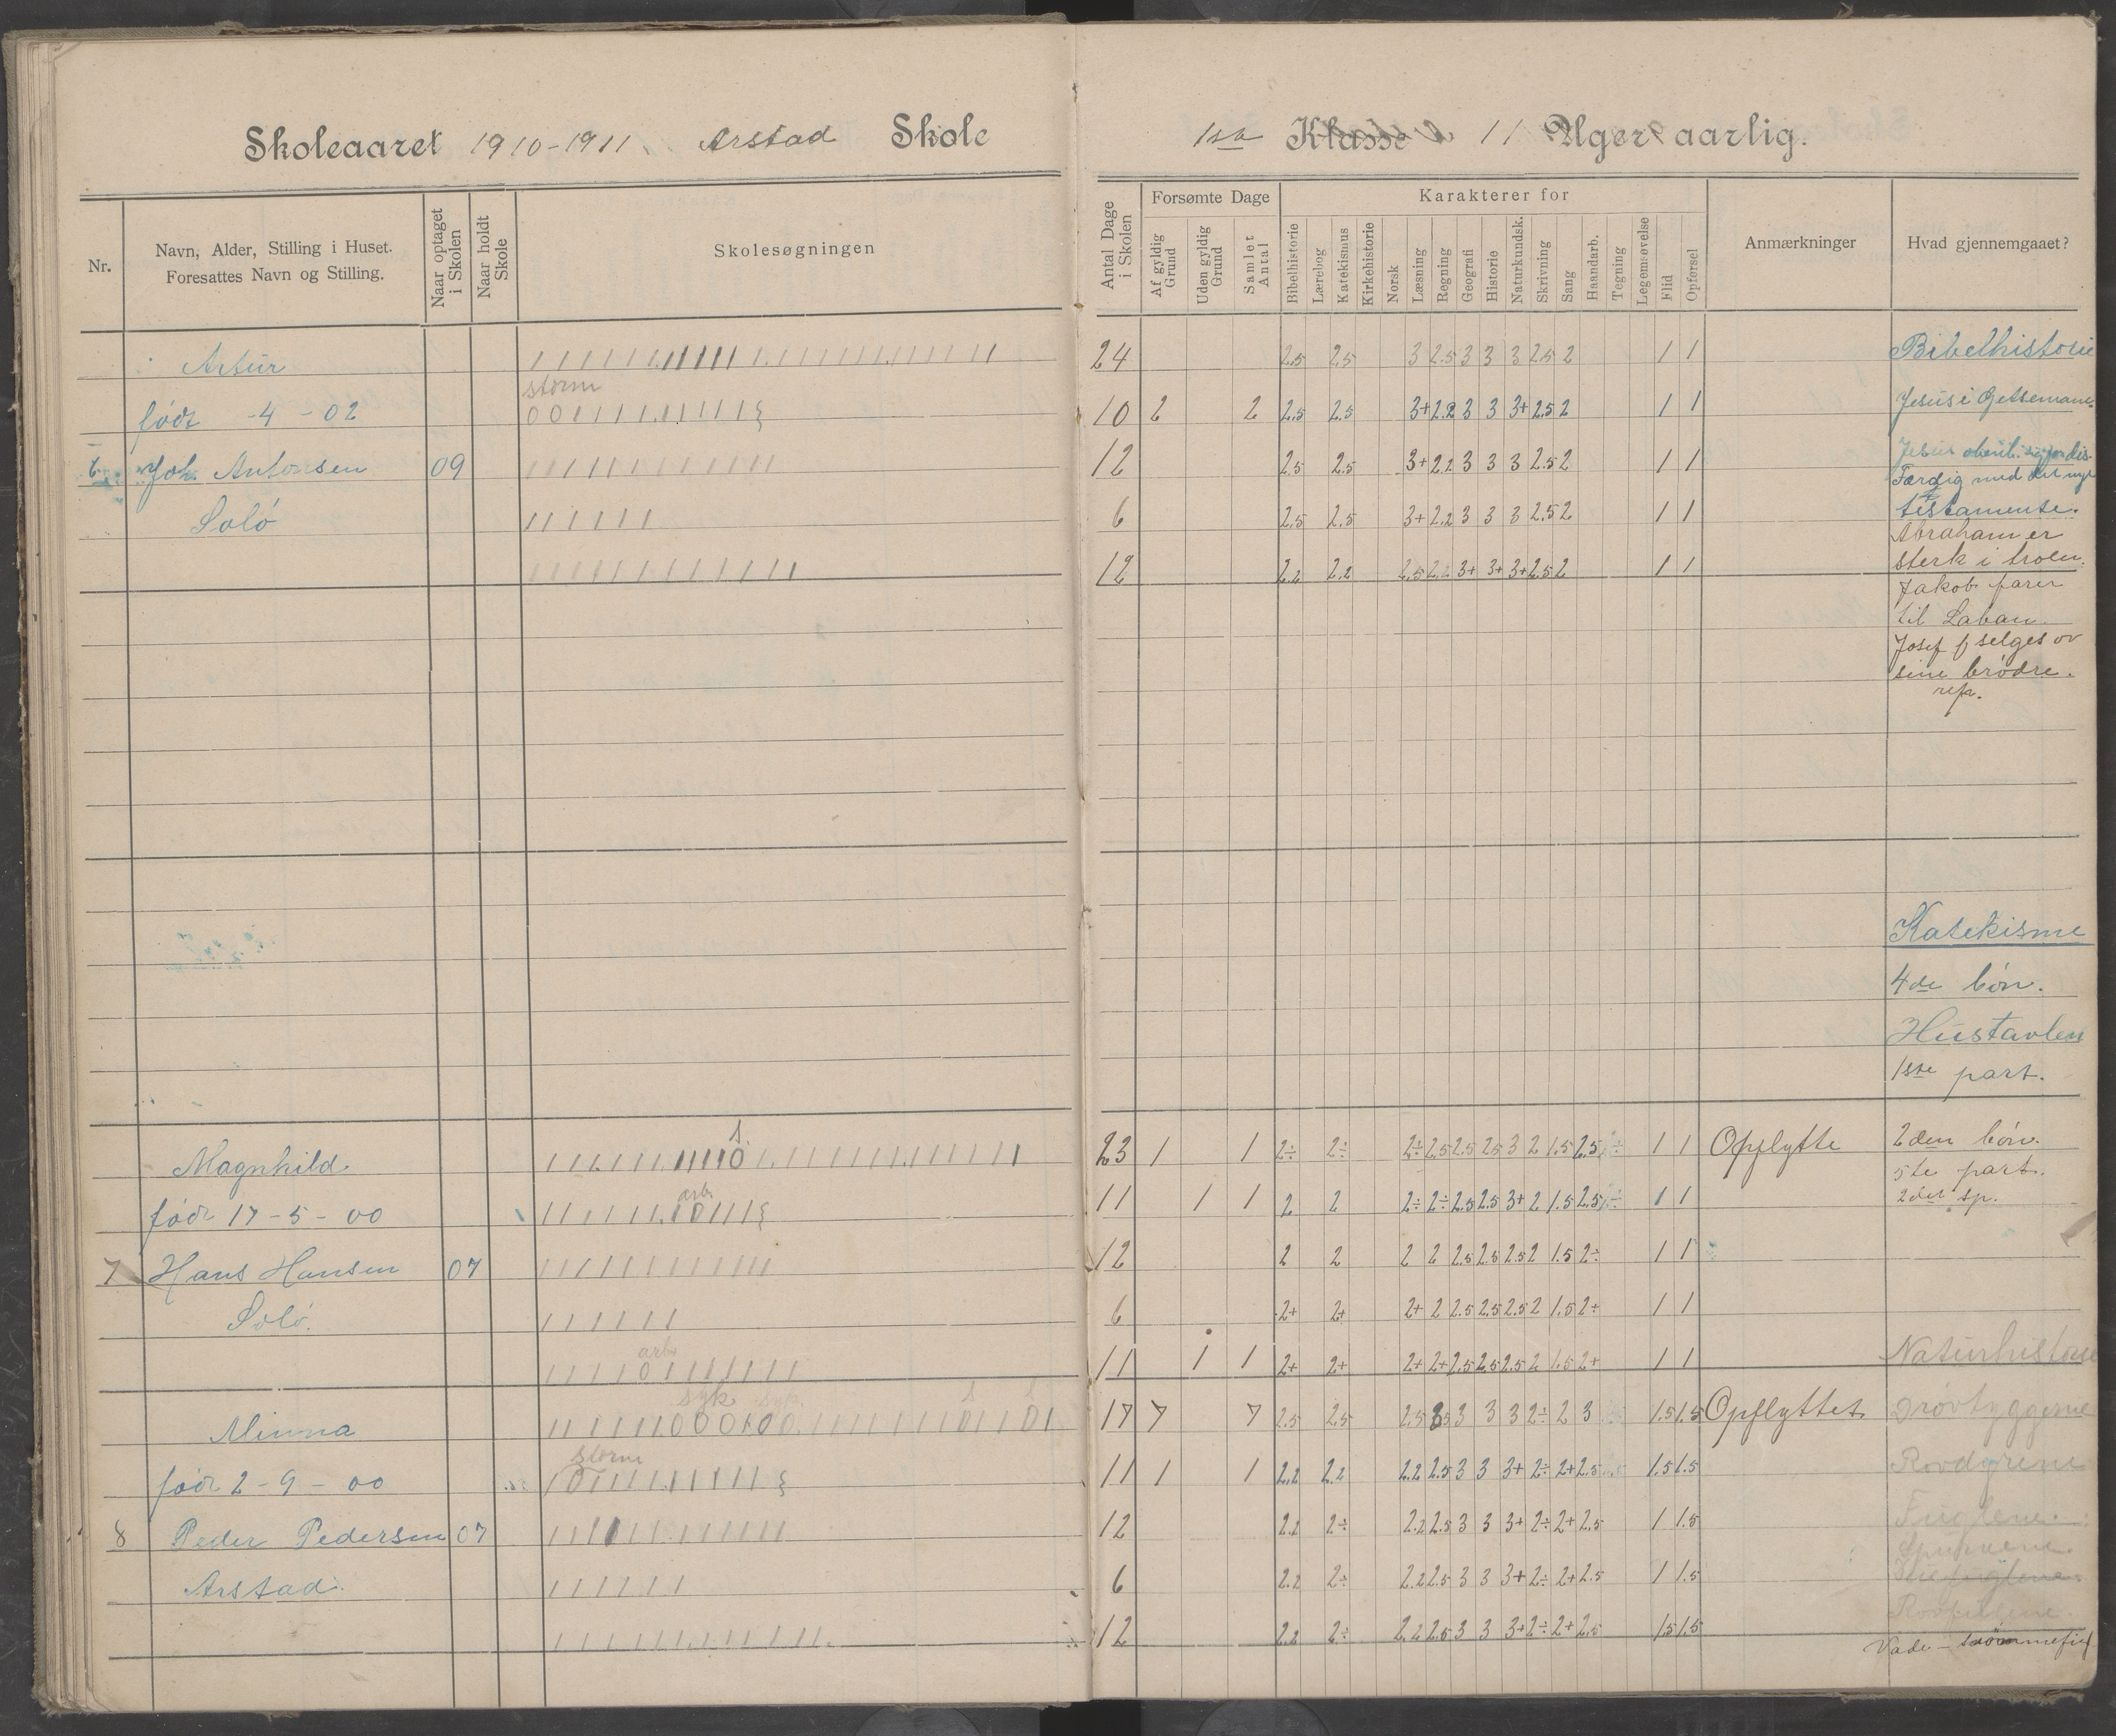 Skoleaaret 1910-1911. Arstad Skole
1ste Klasse 11 Uger aarlig.
Nr.
Navn, Alder, Stilling i Huset.
Foresattes Navn og Stilling.
Naar optaget i Skolen
Naar holdt Skole
Skolesøgningen
Antal Dage i Skolen
Forsømte Dage
Af gyldig Grund
Uden gyldig Grund
Samlet Antal
Karakterer for
Bibelhistorie
Lærebog
Katekismus
Kirkehistorie
Norsk
Læsning
Regning
Geografi
Historie
Naturkundsk.
Skrivning
Sang
Haandarb.
Tegning
Legemsøvelse
Flid
Opførsel
Anmærkninger
Hvad gjennemgaaet?
Artur 24 2.5 2.5 3 2.5 3 3 3 2.5 2 1 1 Bibelhistorie
storm
født -4-02 10 2 2 2.5 2.5 3+ 2.2 3 3 3+ 2.5 2 1 1 Jesus i Getsemane.
Joh. Antonsen 09 12 2.5 2.5 3+ 2.2 3 3 3 2.5 2 1 1 Jesus
Færdig med det nye
Solö 6 2.5 2.5 3+ 2.2 3 3 3 2.5 2 1 1 testamente.
Abraham er
12 2.2 2.2 2.5 2.2 3+ 3+ 3+ 2.5 2 1 1 sterk i troen.
Jakob farer
til Laban
Josef selges av
sine brödre.
rep.
Katekisme
4de bön.
Hustavlen
1ste part.
s.
Magnhild. 23 1 1 2÷ 2÷ 2÷ 2.5 2.5 2.5 3 2 1.5 2.5 1 1 Opflytte 2den bön.
5te part.
arb.
född 17-5-00 11 1 1 2 2 2÷ 2÷ 2.5 2.5 3+ 2 1.5 2.5 1 1 2det sp.
7 Hans Hansen 07 12 2 2 2 2 2.5 2.5 2.5 2 1.5 2÷ 1 1
Solö. 6 2+ 2+ 2+ 2 2.5 2.5 2.5 2 1.5 2÷ 1 1
arb.
11 1 1 2+ 2+ 2+ 2+ 2.5 2.5 2.5 2 1.5 2+ 1 1 Naturhistorie
syk syk. s s
Minna 17 7 7 2.5 2.5 2.5 3 3 3 3 2÷ 2 3 1.5 1.5 Opflyttet drövtyggerne
storm
född 2-9-00 11 1 1 2.2 2.2 2.2 2.5 3 3 3+ 2÷ 2+ 2.5 1.5 1.5 Rovdyrene
8 Peder Pedersen 07 12 2.2 2÷ 2.2 2.5 3 3 3+ 2÷ 2+ 2.5 1 1.5 Fuglene.
Arstad. 6 2.2 2÷ 2.2 2.5 3 3 3+ 2÷ 2+ 2.5 1 1.5
Rovfuglene.
12 2.2 2÷ 2.2 2.5 3 3 3+ 2÷ 2+ 2.5 1.5 1.5
Vade- svömmefugl